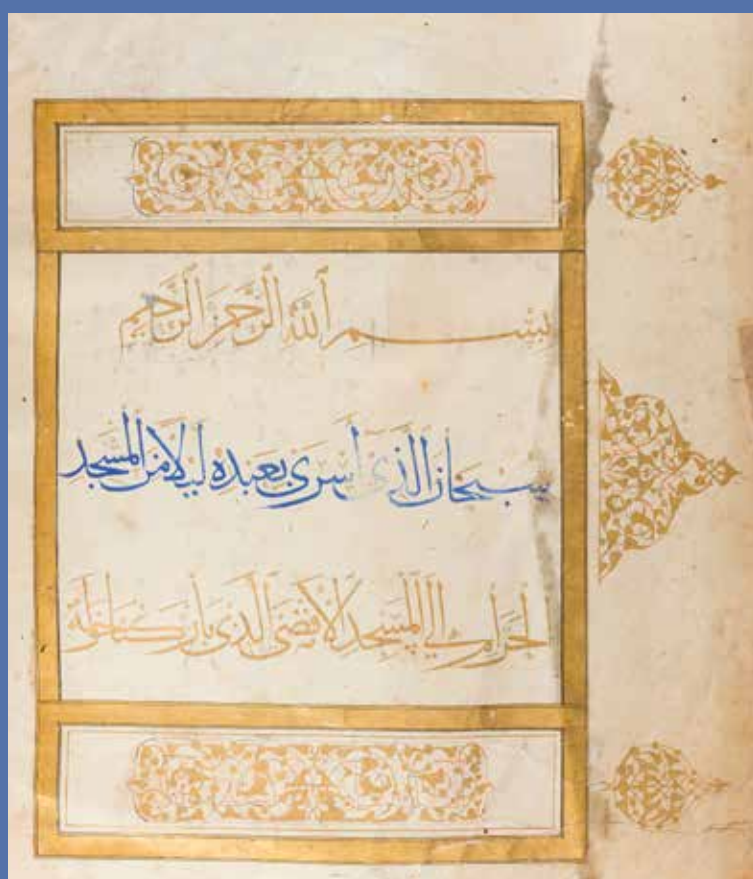 بسم الله الرحمن الرحيم
سبحان الذي أسرى بعبده ليلا من المسجد
الحرام إلى المسجد الأقصى الذي باركنا حوله